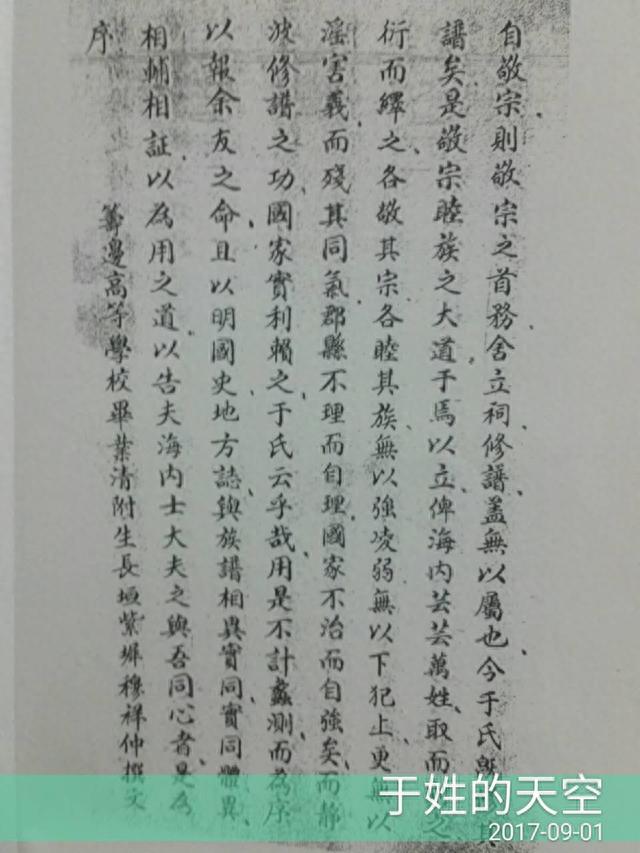 自敬宗則敬宗之首務舍立祠修譜、蓋無以屬也、今于氏
譜矣、是敬宗睦族之大道于焉以立、俾海内芸芸萬姓、取而
衍而繹之、各敬其宗、各睦其族、無以強凌弱、無以下犯上、更無以
滛害義、而殘其同氣、郡縣不理而自理、國家不治而自強矣、而靜
波修譜之功、國家實利賴之、于氏云乎哉、用是不計蠡測、而為序
以報余友之命、且以明國史地方誌、與族譜相異實同、實同體異、
相輔相証、以為用之道、以告夫海内士大夫之與吾同心者、是為
序
籌邊高等學校畢業清附生長垣紫墀穆祥仲撰文
于姓的天空
2017-09-01